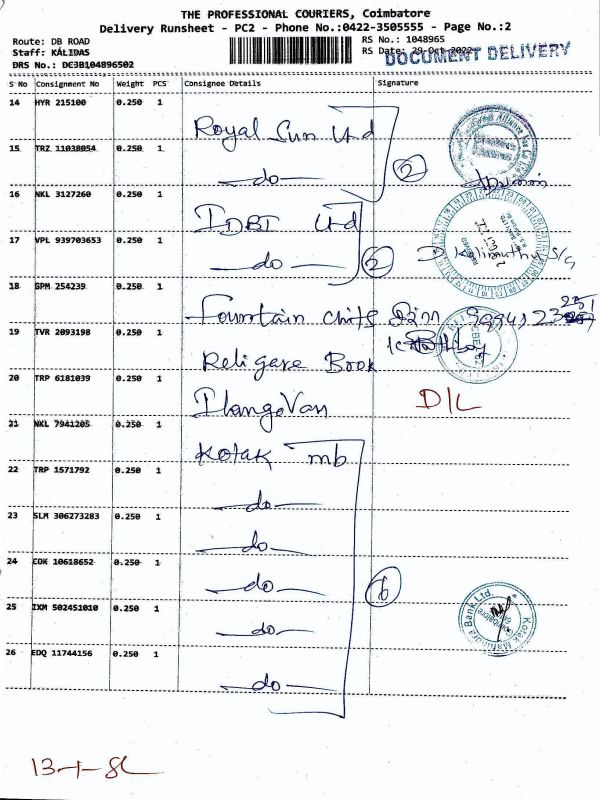 THE PROFESSIONAL COURIERS, Coimbatore
Delivery Runsheet - PC2 - Phone No.:0422-3505555 - Page No.:2
Route: DB ROAD
Staff: KALIDAS
DRS No.: DC3B104896502
RS No.: 1048965
RS Date: 29-Oct-2022
DOCUMENT DELIVERY
S No Consignment No Weight PCS Consignee Details Signature
14 HYR 215100 0.250 1 Royal Sun Ltd
15 TRZ 11038054 0.250 1 do
2
16 NKL 3127260 0.250 1 IDBI Ltd
17 VPL 939703653 0.250 1 do
2
18 GPM 254239 0.250 1 Fountain chits
19 TVR 2093198 0.250 1 Religare Brok
20 TRP 6181039 0.250 1 IlangoVan D/L
21 NKL 7941205 0.250 1 Kotak mb
22 TRP 1571792 0.250 1 do
23 SLM 306273283 0.250 1 do
24 COK 10618652 0.250 1 do
6
25 IXM 502451010 0.250 1 do
26 EDQ 11744156 0.250 1 do
Kotak Mahindra Bank Ltd.